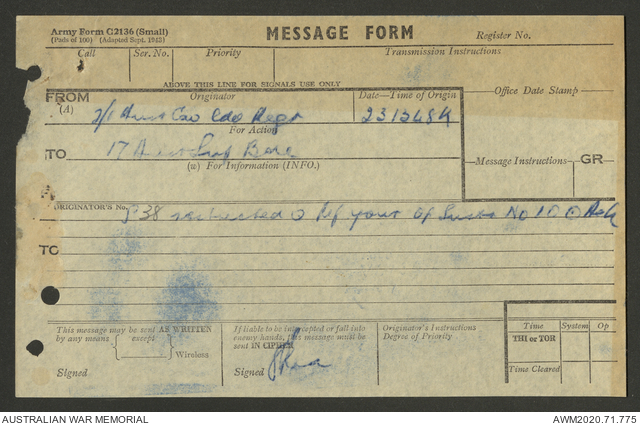 Army Form C2136 (Small)
(Pads of 100) (Adapted Sept. 1943)
MESSAGE FORM
Register No.
Call
Ser. No.
Priority
Transmission Instructions
ABOVE THIS LINE FOR SIGNALS USE ONLY
FROM
(A)
Originator
Date—Time of Origin
Office Date Stamp
2/1 Aust Cav Cdo Regt
231348K
For Action
TO
17 Aust Inf Bde
(w) For Information (INFO.)
Message Instructions
GR
ORIGINATOR'S No.
38 restricted O Ref your Op No 10 O
TO
This message may be sent AS WRITTEN
by any means except
Wireless
Signed
If liable to be intercepted or fall into
enemy hands, this message must be
sent IN CIPHER
Signed
Originator's Instructions
Degree of Priority
Time
System
Op
THI or TOR
Time Cleared
AUSTRALIAN WAR MEMORIAL
AWM2020.71.775